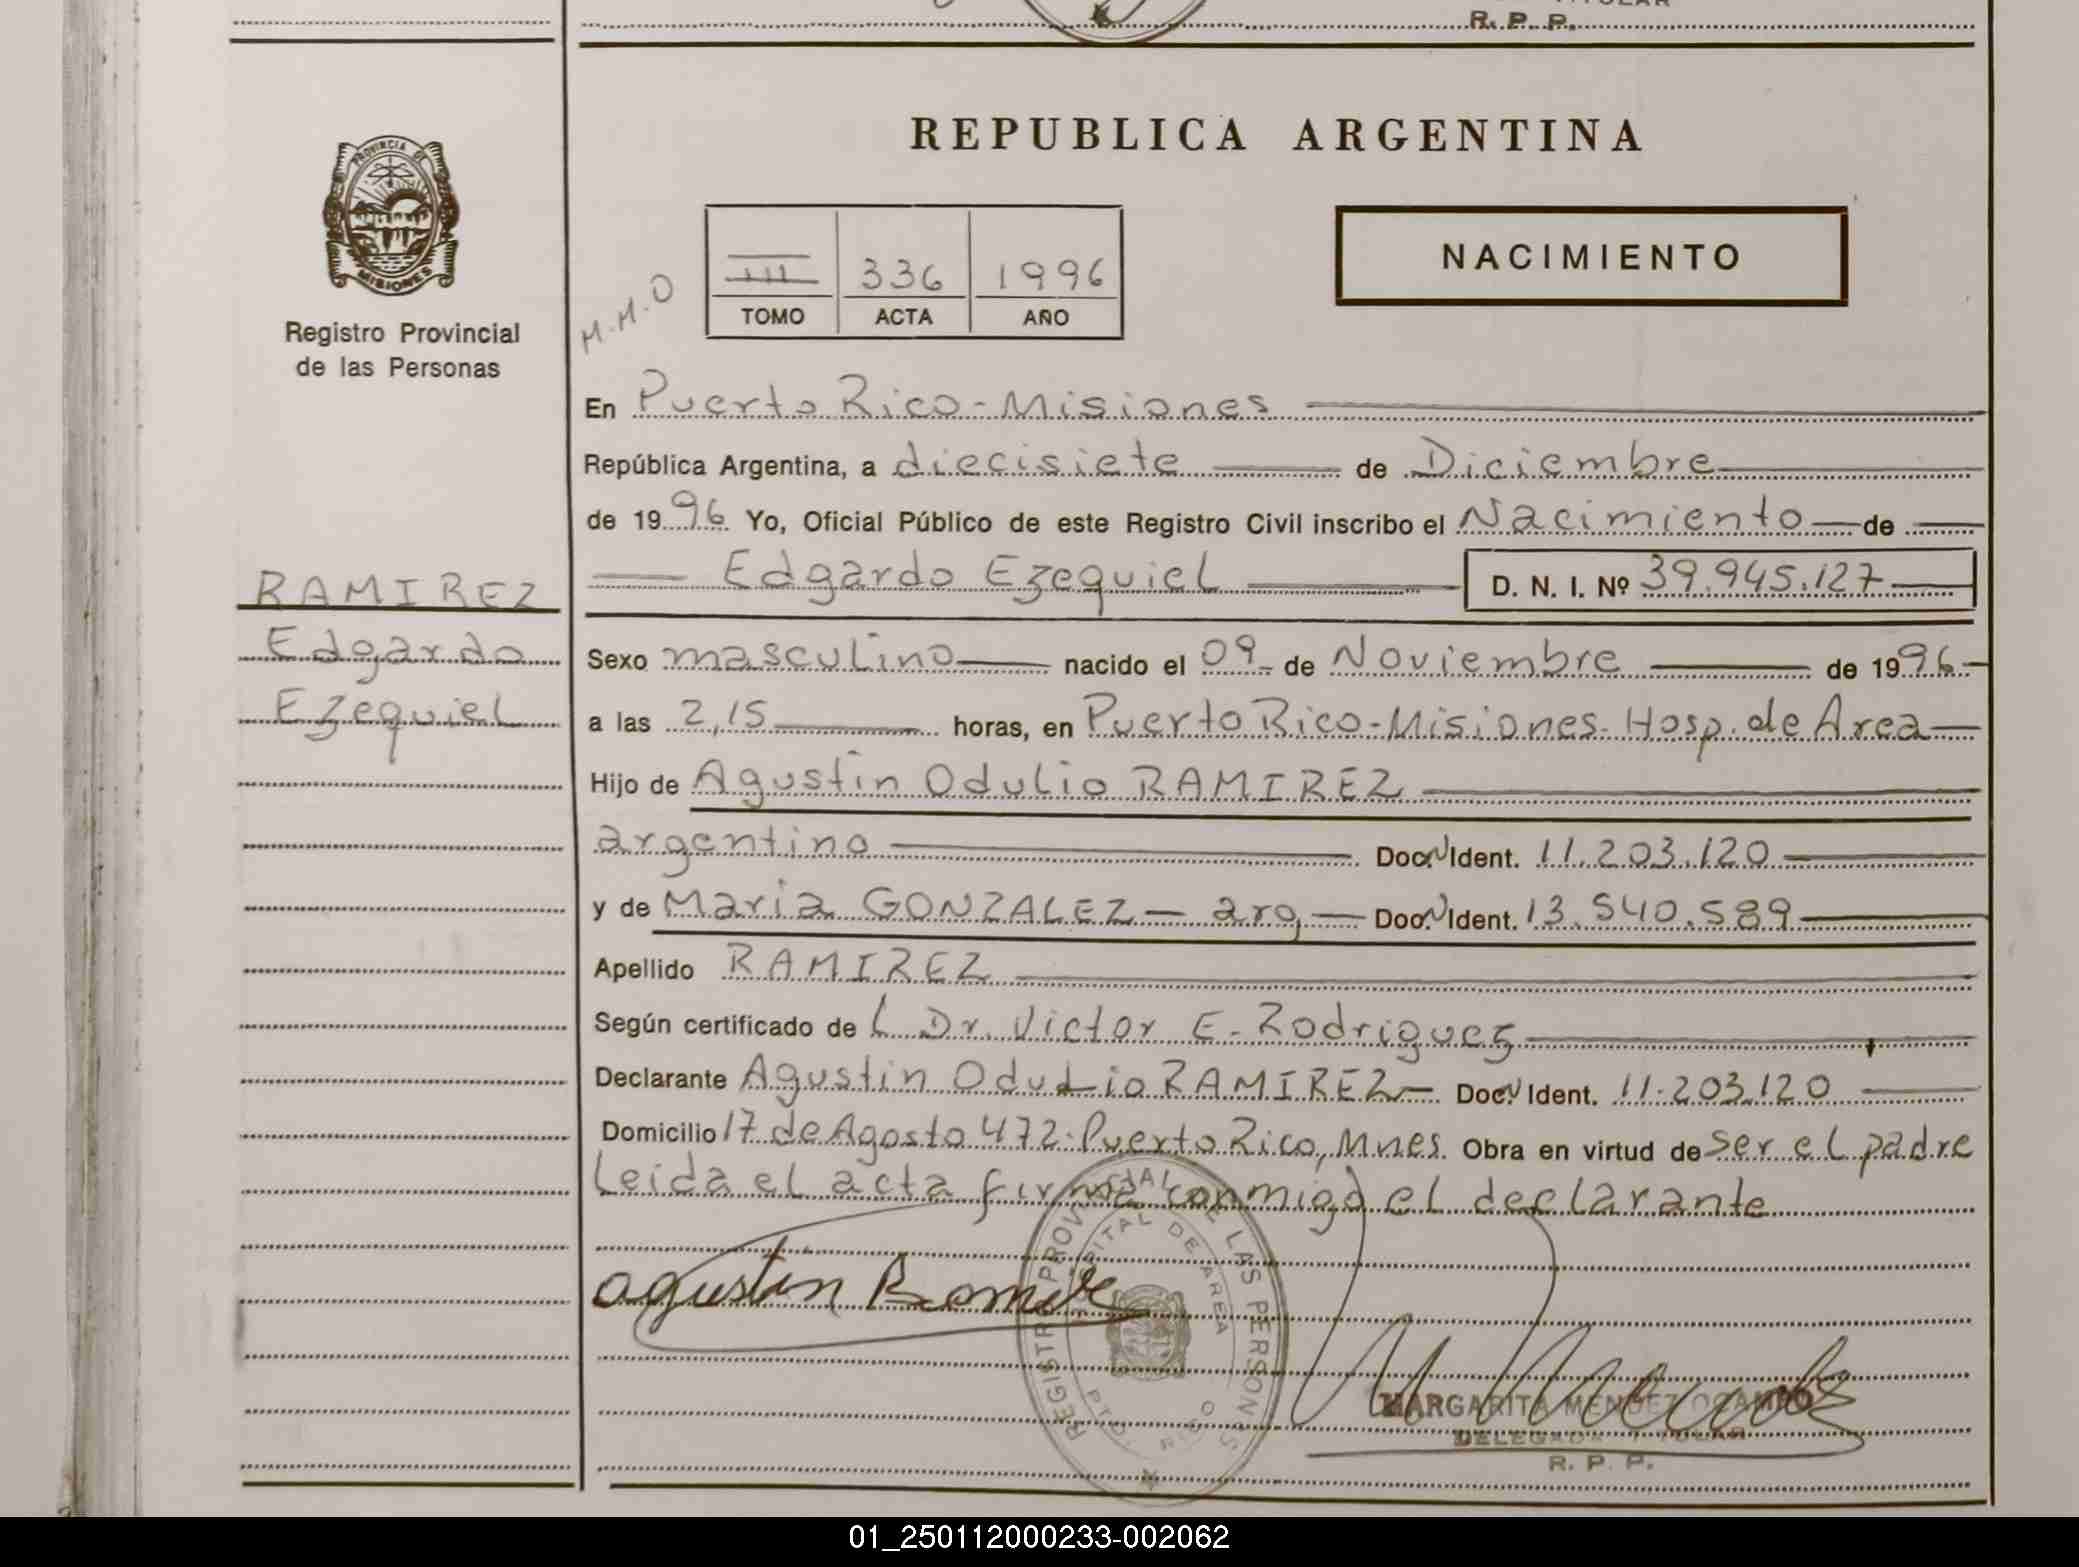 TITULAR
R. P. P.
REPUBLICA ARGENTINA
PROVINCIA DE
MISIONES
Registro Provincial
de las Personas
NACIMIENTO
III 336 1996
TOMO ACTA AÑO
M.M.O
En Puerto Rico - Misiones
República Argentina, a diecisiete de Diciembre
de 1996 Yo, Oficial Público de este Registro Civil inscribo el Nacimiento de
Edgardo Ezequiel D. N. I. Nº 39.945.127
RAMIREZ
Edgardo
Ezequiel
Sexo masculino nacido el 09 de Noviembre de 1996
a las 2,15 horas, en Puerto Rico - Misiones. Hosp. de Area
Hijo de Agustin Odulio RAMIREZ
argentino Doc. N Ident. 11.203.120
y de Maria GONZALEZ - arg - Doc. N Ident. 13.540.589
Apellido RAMIREZ
Según certificado de L Dr. Victor E. Rodriguez
Declarante Agustin Odulio RAMIREZ Doc. N Ident. 11.203.120
Domicilio 17 de Agosto 472. Puerto Rico, Mnes. Obra en virtud de ser el padre
Leida el acta firma conmigo el declarante
REGISTRO PROVINCIAL DE LAS PERSONAS
HOSPITAL DE AREA
PTO. RICO
Agustin Ramirez
MARGARITA MENDEZ OCAMPO
DELEGADA TITULAR
R. P. P.
01_250112000233-002062